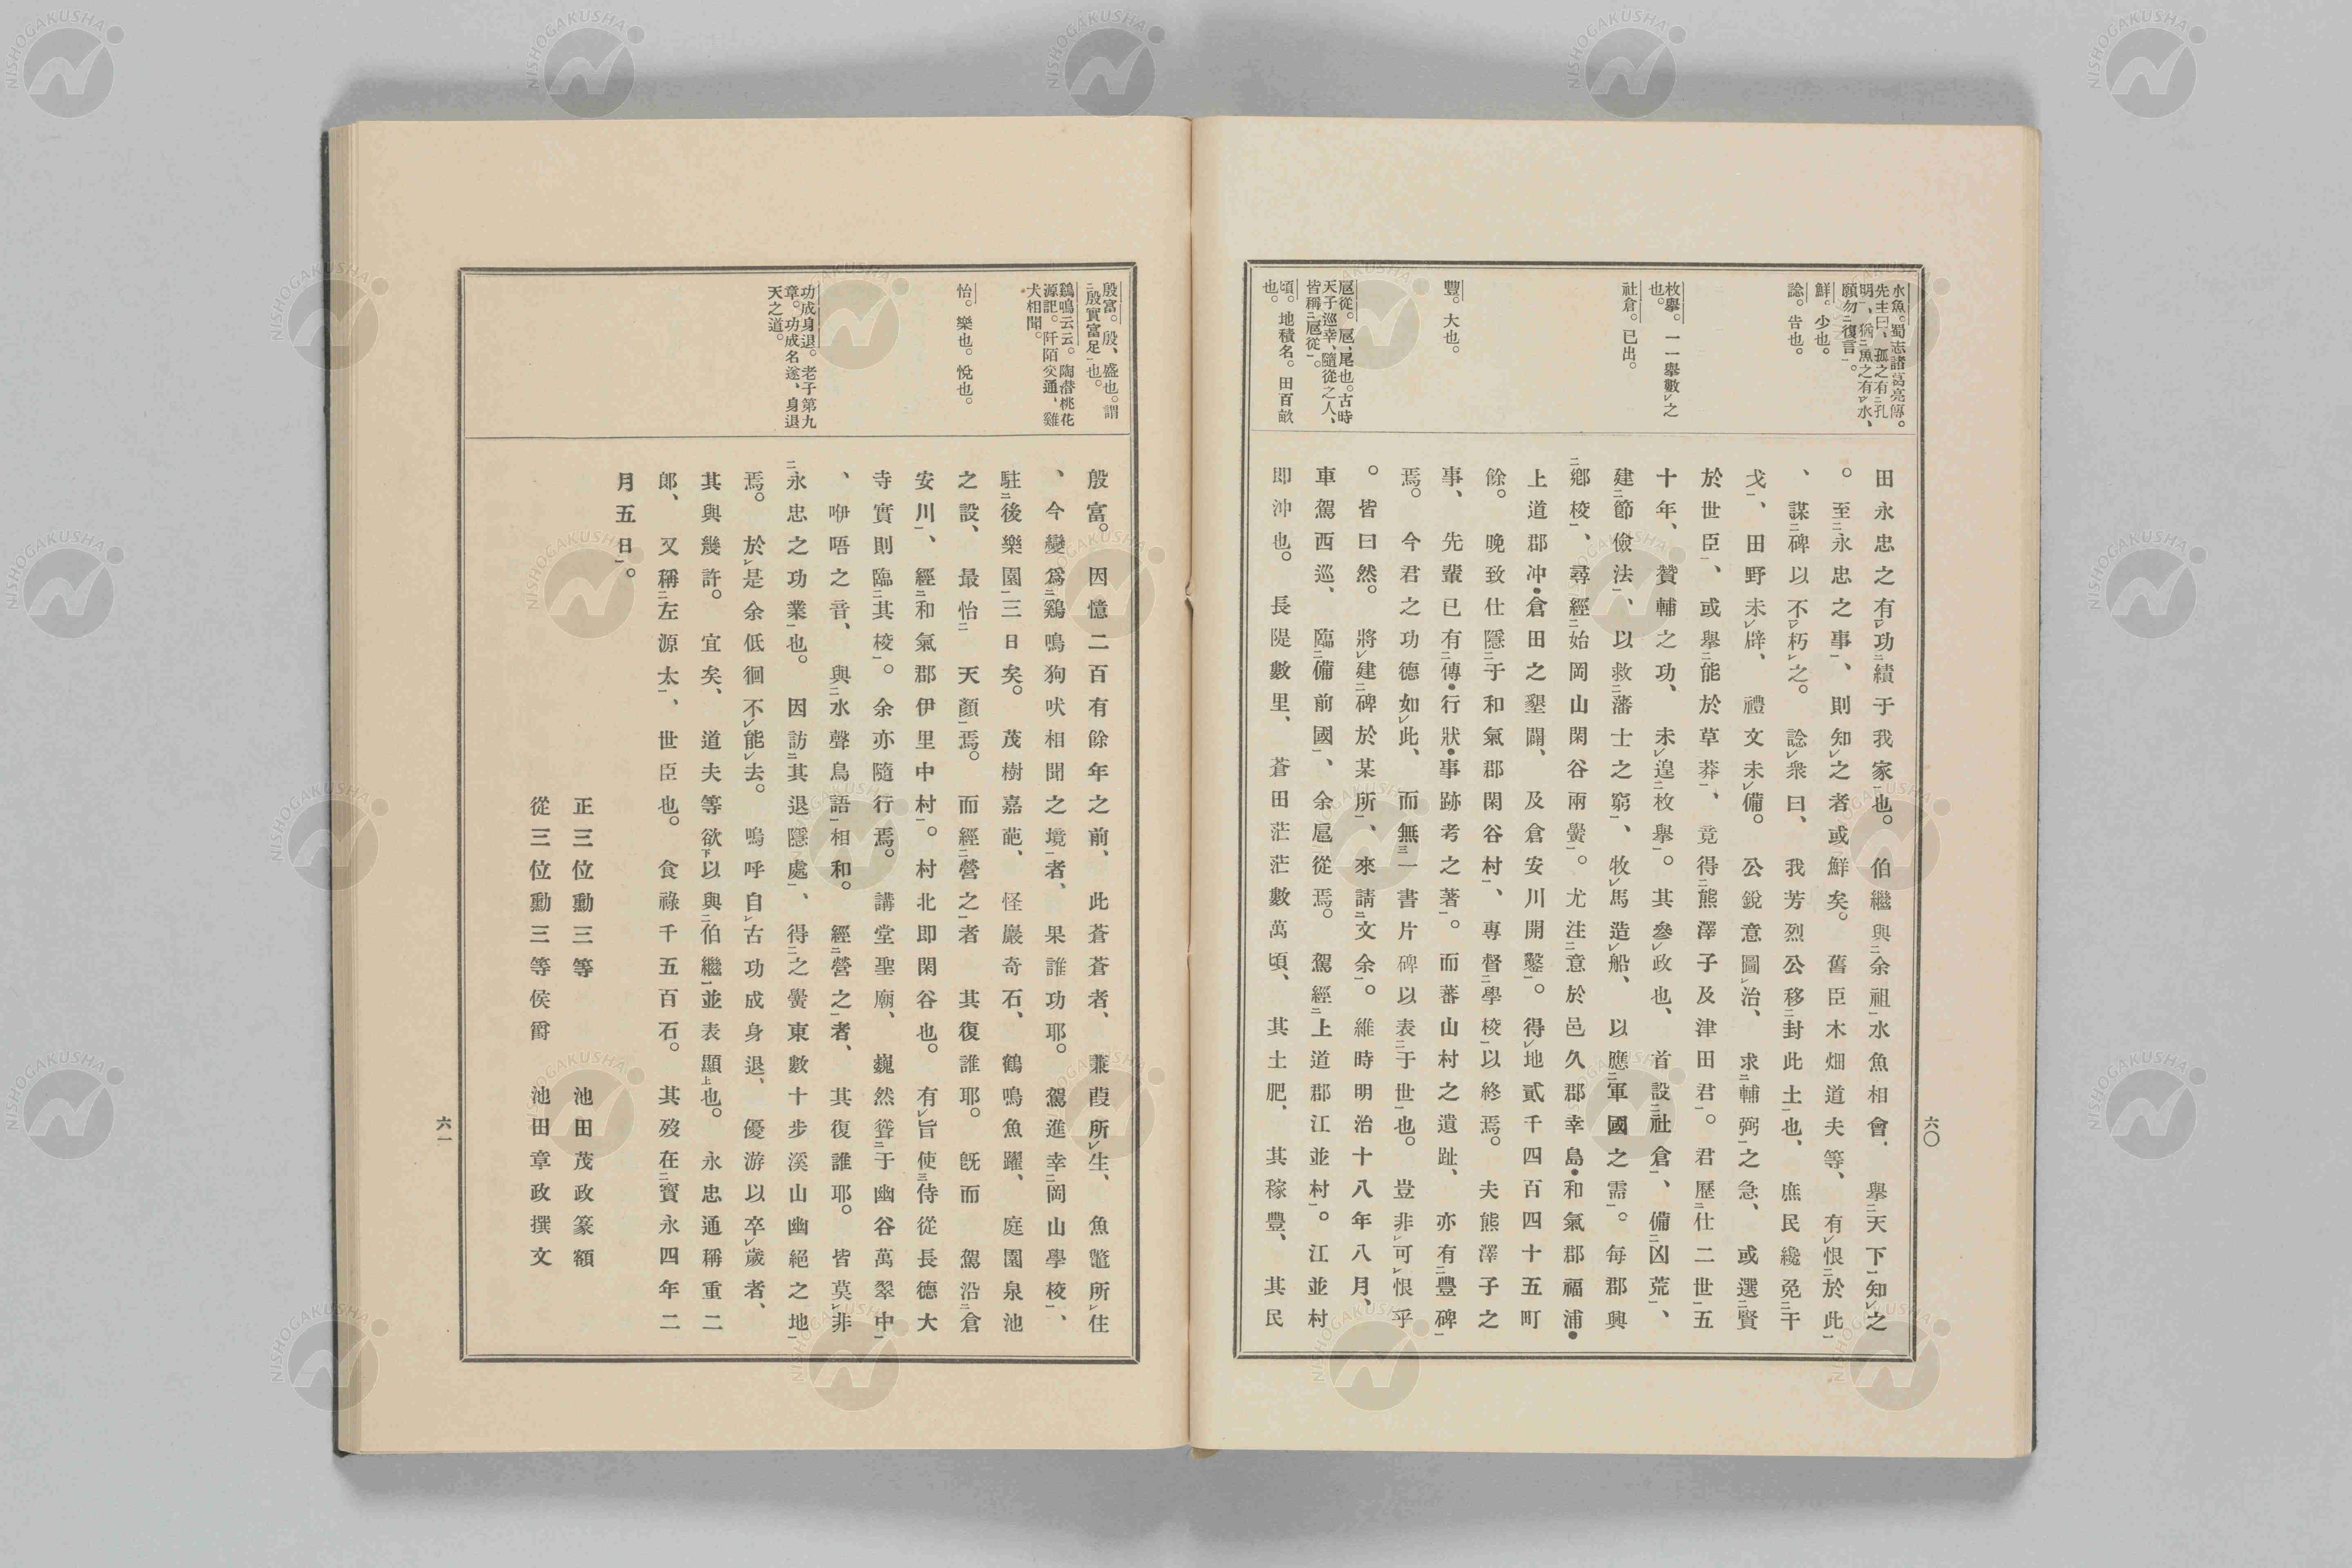 水魚。蜀志諸葛亮傳。
先主曰、孤之有孔
明、猶魚之有水、
願勿復言。
鮮。少也。
諗。告也。
枚擧。一一擧數之
也。
社倉。已出。
豐。大也。
扈從。扈、尾也。古時
天子巡幸、隨從之人、
皆稱扈從。
頃。地積名。田百畝
也。
田永忠之有功績于我家也。伯繼與余祖水魚相會、擧天下知之
。至永忠之事、則知之者或鮮矣。舊臣木畑道夫等、有恨於此
、謀碑以不朽之。諗衆曰、我芳烈公移封此土也、庶民纔免干
戈、田野未辟、禮文未備。公銳意圖治、求輔弼之急、或選賢
於世臣、或擧能於草莽、竟得熊澤子及津田君。君歷仕二世五
十年、贊輔之功、未遑枚擧。其參政也、首設社倉、備凶荒、
建節儉法、以救藩士之窮、牧馬造船、以應軍國之需。每郡興
鄕校、尋經始岡山閑谷兩黌。尤注意於邑久郡幸島・和氣郡福浦・
上道郡沖・倉田之墾闢、及倉安川開鑿。得地貳千四百四十五町
餘。晚致仕隱于和氣郡閑谷村、專督學校以終焉。夫熊澤子之
事、先輩已有傳・行狀・事跡考之著。而蕃山村之遺趾、亦有豐碑
焉。今君之功德如此、而無一書片碑以表于世也。豈非可恨乎
。皆曰然。將建碑於某所、來請文余。維時明治十八年八月、
車駕西巡、臨備前國、余扈從焉。駕經上道郡江並村。江並村
即沖也。長隄數里、蒼田茫茫數萬頃、其土肥、其稼豐、其民
六〇
殷富。殷、盛也。謂
殷實富足也。
鷄鳴云云。陶晉桃花
源記。阡陌交通、雞
犬相聞。
怡。樂也。悅也。
功成身退。老子第九
章。功成名遂、身退
天之道。
殷富。因憶二百有餘年之前、此蒼蒼者、蒹葭所生、魚鼈所住
、今變爲鷄鳴狗吠相聞之境者、果誰功耶。駕進幸岡山學校、
駐後樂園三日矣。茂樹嘉葩、怪巖奇石、鶴鳴魚躍、庭園泉池
之設、最怡天顏焉。而經營之者其復誰耶。旣而駕沿倉
安川、經和氣郡伊里中村。村北即閑谷也。有旨使侍從長德大
寺實則臨其校。余亦隨行焉。講堂聖廟、巍然聳于幽谷萬翠中
、咿唔之音、與水聲鳥語相和。經營之者、其復誰耶。皆莫非
永忠之功業也。因訪其退隱處、得之黌東數十步溪山幽絕之地
焉。於是余低徊不能去。嗚呼自古功成身退、優游以卒歲者、
其與幾許。宜矣、道夫等欲以與伯繼並表顯也。永忠通稱重二
郎、又稱左源太、世臣也。食祿千五百石。其歿在寶永四年二
月五日。
正三位勳三等　池田茂政篆額
從三位勳三等侯爵　池田章政撰文
六一